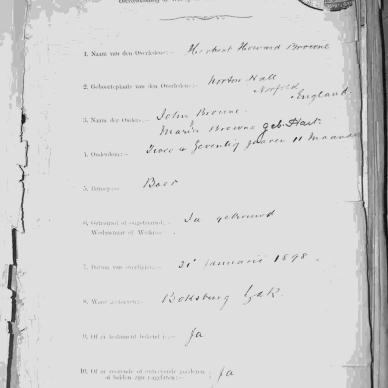 1. Naam van den Overledene:– Herbert Howard Browne
2. Geboorteplaats van den Overledene:– Norton Hall
Norfolk
England.
3. Namen der Ouders:– John Browne.
Maria Browne geb. Hart.
4. Ouderdom:– Twee en Zeventig jaaren 11 Maanden
5. Beroep:– Boer
6. Getrouwd of ongetrouwd:– Ja getrouwd
Weduwnaar of Weduwe
7. Datum van overlijden:– 21 Januarie 1898.
8. Waar gestorven:– Boksburg
9. Of er testament bekend is:– Ja
10. Of er roerende of onroerende goederen
of beiden zijn nagelaten:– Ja